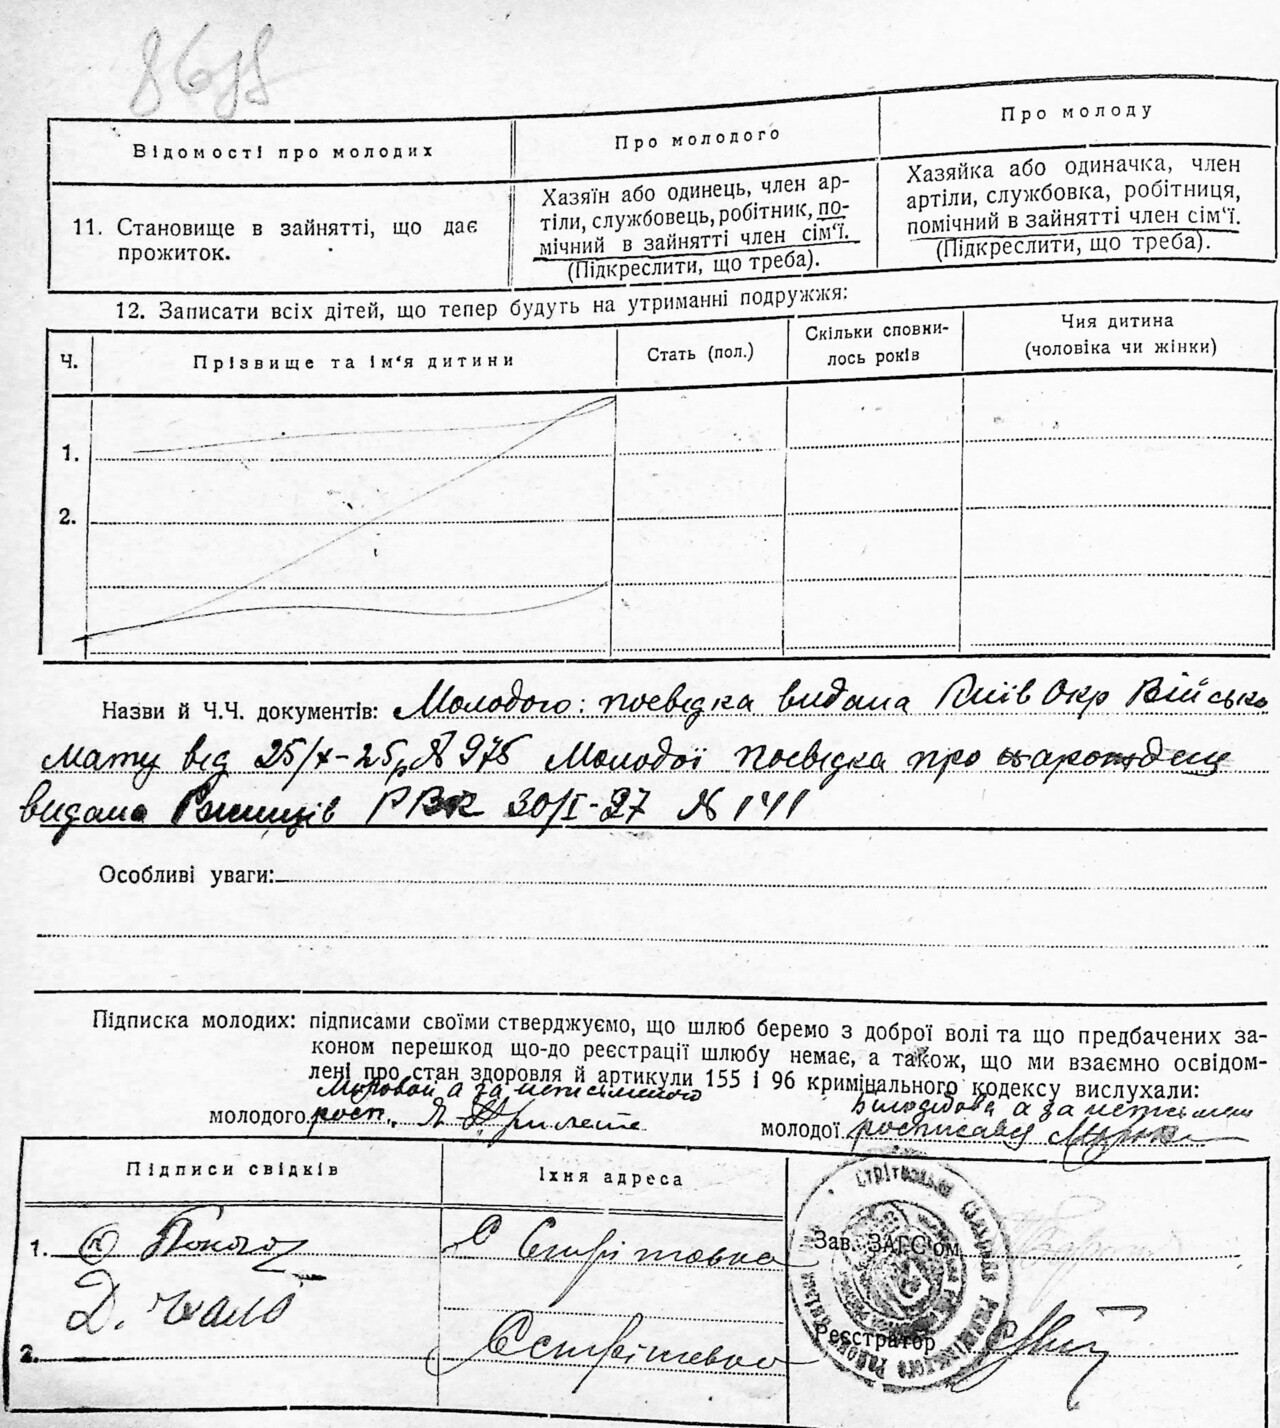 Відомості про молодих
Про молодого
Про молоду
11. Становище в зайнятті, що дає
прожиток.
Хазяїн або одинець, член ар-
тіли, службовець, робітник, по-
мічний в зайнятті член сім'ї.
(Підкреслити, що треба).
Хазяйка або одиначка, член
артіли, службовка, робітниця,
помічний в зайнятті член сім'ї.
(Підкреслити, що треба).
12. Записати всіх дітей, що тепер будуть на утриманні подружжя:
Ч.
Прізвище та ім'я дитини
Стать (пол.)
Скільки сповни-
лось років
Чия дитина
(чоловіка чи жінки)
1.
2.
Назви й Ч.Ч. документів: Молодого: посвідка видана Київ Окр Військо
мату від 25/X-25р № 975 Молодої посвідка про
видана РВК 30/I-27 № 141
Особливі уваги:
Підписка молодих: підписами своїми стверджуємо, що шлюб беремо з доброї волі та що предбачених за-
коном перешкод що-до реєстрації шлюбу немає, а також, що ми взаємно освідом-
лені про стан здоровля й артикули 155 і 96 кримінального кодексу вислухали:
а за неписьменого
молодого розп.
а за неписьмену
молодої росписавсь
Підписи свідків
Їхня адреса
1.
С
2. Д.
Зав. ЗАГС'ом
Реєстратор